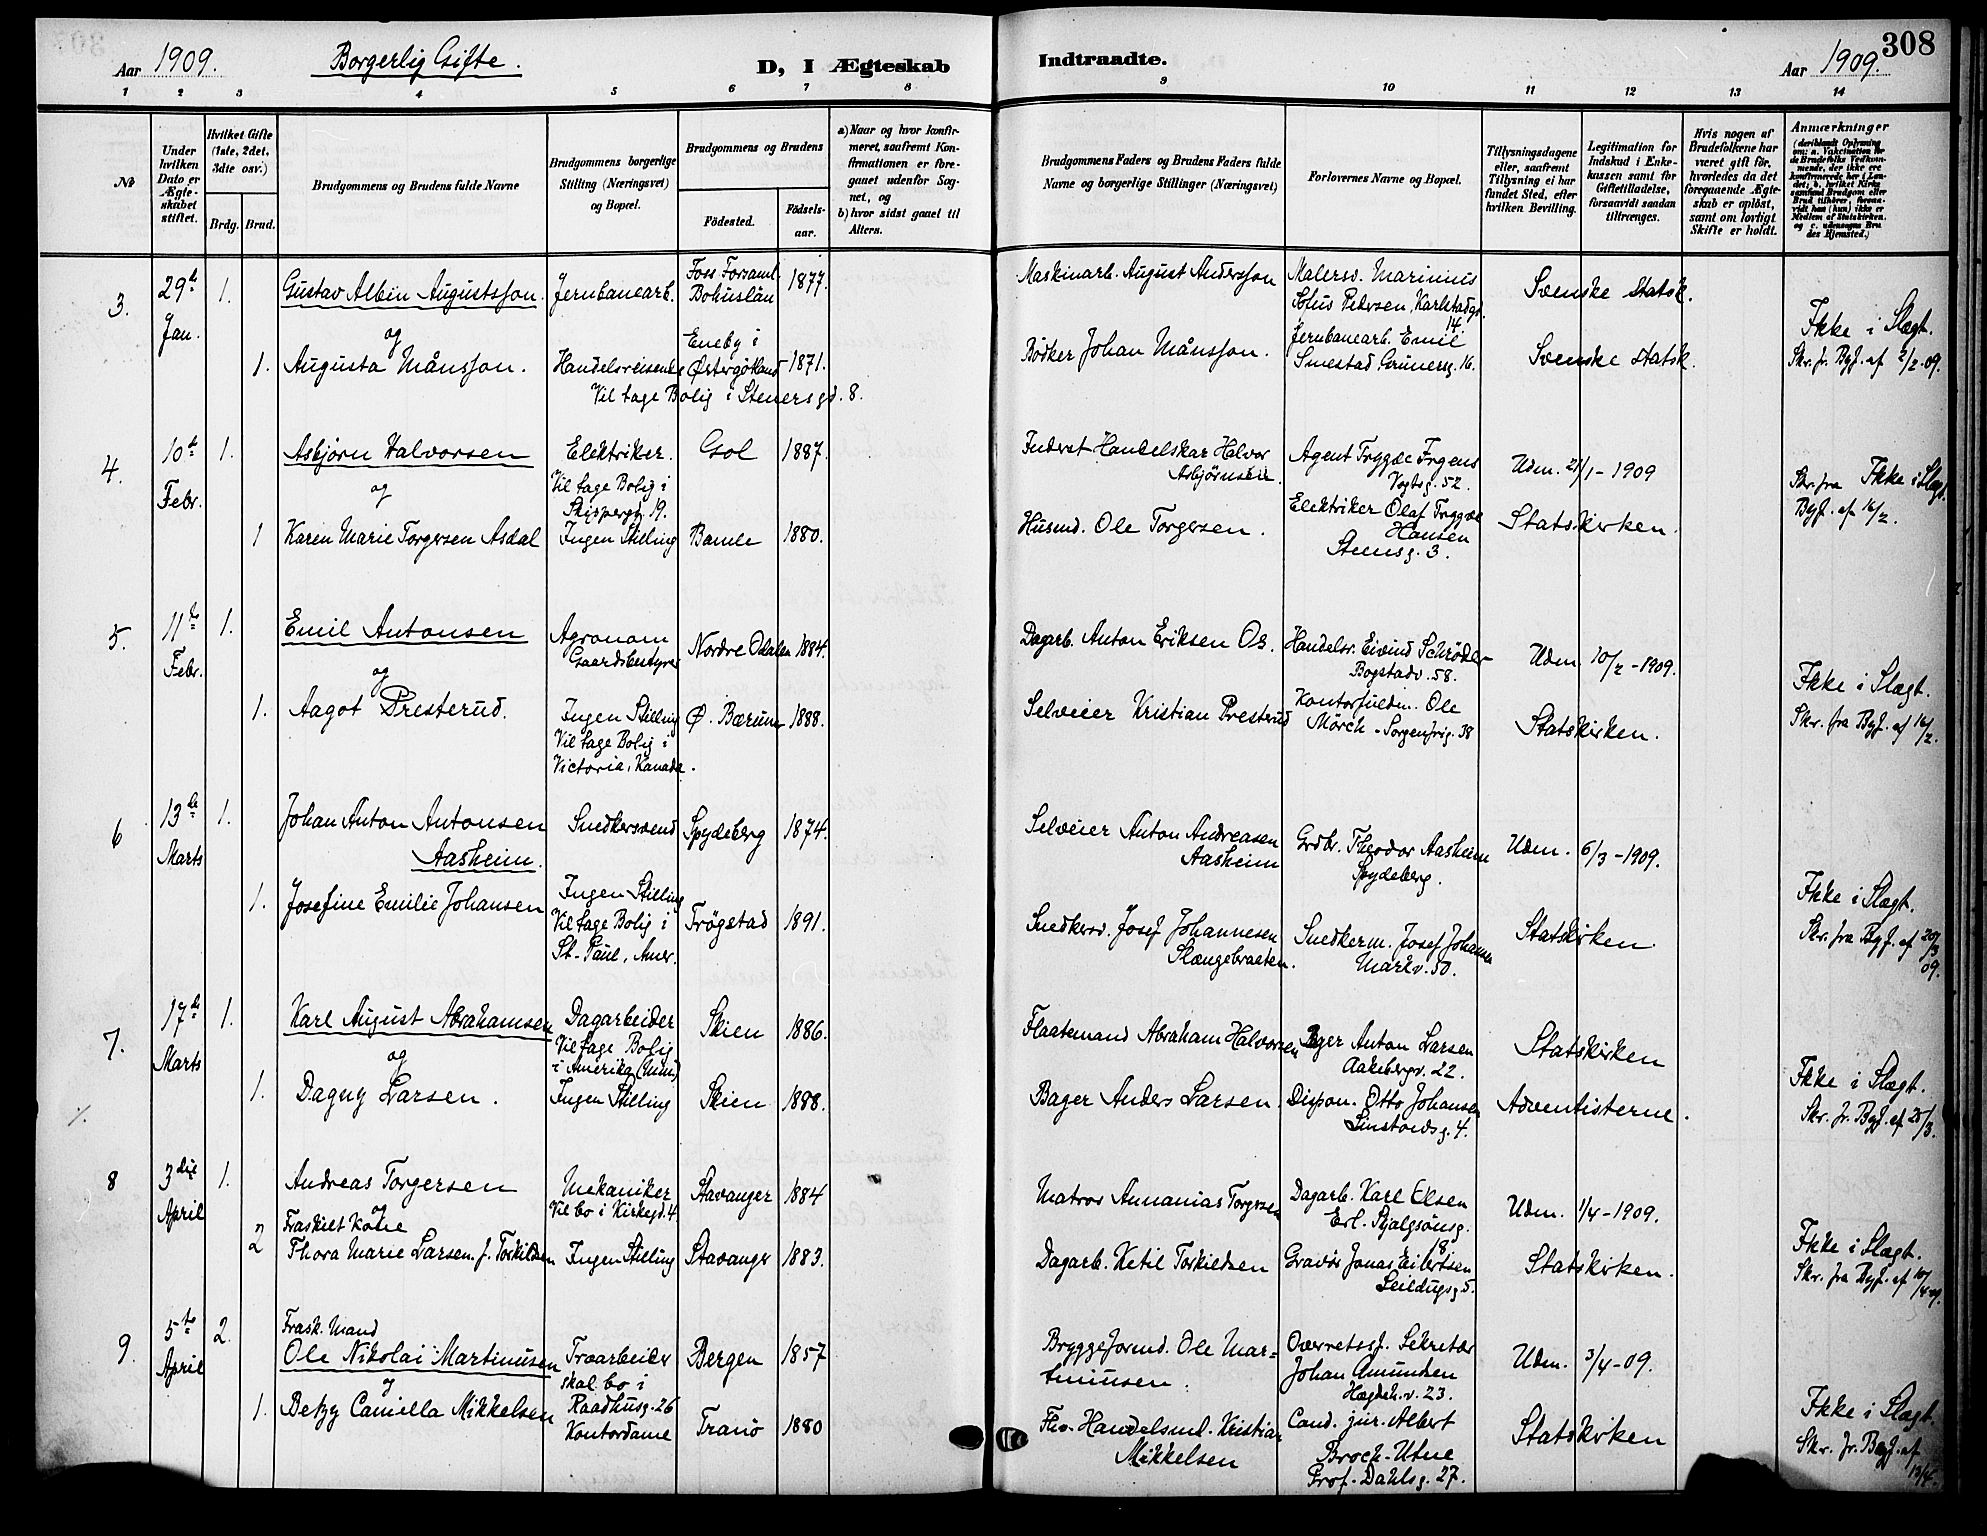 308
Aar 1909. Borgerlig Gifte. D, I Ægteskab Indtraadte. Aar 1909.
1 2 3 4 5 6 7 8 9 10 11 12 13 14
№
Under hvilken Dato er Ægteskabet stiftet.
Hvilket Gifte (1ste, 2det, 3dte osv.)
Brdg. Brud.
Brudgommens og Brudens fulde Navne
Brudgommens borgerlige Stilling (Næringsvei) og Bopæl.
Brudgommens og Brudens
Födested. Födsels-aar.
a) Naar og hvor konfirmeret, saafremt Konfirmationen er foregaaet udenfor Sognet, og
b) hvor sidst gaaet til Alters.
Brudgommens Faders og Brudens Faders fulde Navne og borgerlige Stillinger (Næringsvei)
Forlovernes Navne og Bopæl.
Tillysningsdagene eller, saafremt Tillysning ei har fundet Sted, efter hvilken Bevilling.
Legitimation for Indskud i Enkekassen samt for Giftetilladelse, forsaavidt saadan tiltrænges.
Hvis nogen af Brudefolkene har været gift för, hvorledes da det foregaaende Ægteskab er oplöst, samt om lovligt Skifte er holdt.
Anmærkninger
3. 29de Jan. 1. Gustav Albin Augustsson. Jernbanearb. Foss Forsaml. Bohuslän 1877.
Maskinarb. August Andersson
Malersv. Marinius
Sofus Pedersen, Karlstadg. 14.
Svenske Statsk.
og
1. Augusta Månsson. Handelsreisende Eneby i Østergötland 1871.
Vil tage Bolig i Stenersgd. 8.
Bödker Johan Månsson.
Jernbanearb. Emil
Smestad Grünersg. 16.
Svenske Statsk.
Ikke i Slægt.
Skr. fr. Byf. af 2/2. 09.
4. 10de Febr. 1. Asbjørn Halvorsen Elektriker. Gol 1887.
Vil tage Bolig i
Skippergt. 19.
Inderst Handelskar Halvor
Asbjørnsen.
Agent Tryggve Frgens
Vogtsg. 52.
Udm. 21/1-1909
og
1 Karen Marie Torgersen Asdal Ingen Stilling Bamle 1880.
Husmd. Ole Torgersen.
Elektriker Olaf Tryggve
Hansen
Steensg. 3.
Statskirken.
Skr. fra Ikke i Slægt.
Byf. af 16/2.
5. 11te Febr. 1. Emil Antonsen Agronom
Gaardsbestyrer Nordre Odalen 1884.
Dagarb. Anton Eriksen Os.
Handelsr. Eivind Schrøder
Bogstadv. 58.
Udm 10/2-1909.
og
1. Aagot Presterud. Ingen Stilling Ø. Bærum 1888.
Vil tage Bolig i
Victoria, Kanada.
Selveier Kristian Presterud
Kontorfuldm. Ole
Mörch - Sorgenfrig. 38
Statskirken.
Ikke i Slægt.
Skr. fra Byf. af 16/2.
6 13de Marts 1. Johan Anton Antonsen
Aasheim. Snedkersvend Spydeberg 1874.
Selveier Anton Andreasen
Aasheim
Grdbr. Theodor Aasheim
Spydeberg.
Udm. 6/3-1909.
1. Josefine Emilie Johansen Ingen Stilling Trøgstad 1891.
Vil tage Bolig i
St. Paul, Amer.
Snedkersv. Josef Johannesen
Slængebraaten.
Snedkerm. Josef Johansen
Markv. 50.
Statskirken.
Ikke i Slægt.
Skr. fra Byf. af 20/3 09.
7. 17de Marts 1. Karl August Abrahamsen Dagarbeider Skien 1886.
Vil tage Bolig
i Amerika (Minn)
Flaatemand Abraham Halvorsen
Bager Anton Larsen
Aakebergv. 22.
Statskirken
og
1. Dagny Larsen. Ingen Stilling Skien 1888.
Bager Anders Larsen.
Dispon. Otto Johansen
Sinstordsg. 4.
Adventisterne.
Ikke i Slægt.
Skr. fr. Byf. af 25/3.
8 3die April 1. Andreas Torgersen Mekaniker Stavanger 1884
Vil bo i Kirkegd. 4.
Matros Annanias Torgersen
Dagarb. Karl Olsen
Erl. Skjalgsönsg. 18
Udm. 1/4-1909.
og
Fraskilt Kone
2 Thora Marie Larsen f. Torkildsen Ingen Stilling Stavanger 1883.
Dagarb. Ketil Torkildsen
Gravör Jonas Eilertsen
Seildugsg. 5.
Statskirken.
Ikke i Slægt.
Skr. fra Byf. af 16/4 09.
9. 5te April 2. Frask. Mand
Ole Nikolai Martinusen Træarbeider Bergen 1857
skal bo i
Raadhusg. 26
Bryggeformd. Ole Mar-
tinusen.
Overretssf. Sekretær
Johan Amundsen
Hægdeh.v. 23.
Udm. 3/4-09.
og
1. Betzy Camilla Mikkelsen Kontordame Tranö 1880
Fhv. Handelsmd. Kristian
Mikkelsen
Cand. jur. Albert
Broch-Utne
Prof. Dahlsg. 27.
Statskirken
Ikke i Slægt.
Skr. fr. Byf. af 13/4.